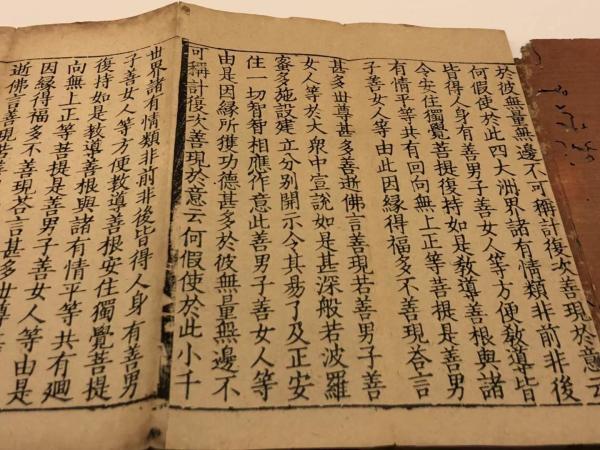 於彼無量無邊不可稱計復次善現於意云
何假使於此四大洲界諸有情類非前非後
皆得人身有善男子善女人等方便敎導皆
令安住獨覺菩提復持如是敎導善根與諸
有情平等共有回向無上正等菩提是善男
子善女人等由此因緣得福多不善現荅言
甚多世尊甚多善逝佛言善現若善男子善
女人等於大衆中宣說如是甚深般若波羅
蜜多施設建立分別開示令其易了及正安
住一切智智相應作意此善男子善女人等
由是因緣所獲功德甚多於彼無量無邊不
可稱計復次善現於意云何假使於此小千
世界諸有情類非前非後皆得人身有善男
子善女人等方便敎導善根安住獨覺菩提
復持如是敎導善根與諸有情平等共有廻
向無上正等菩提是善男子善女人等由是
因緣得福多不善現荅言甚多世尊甚
逝佛言善現若善